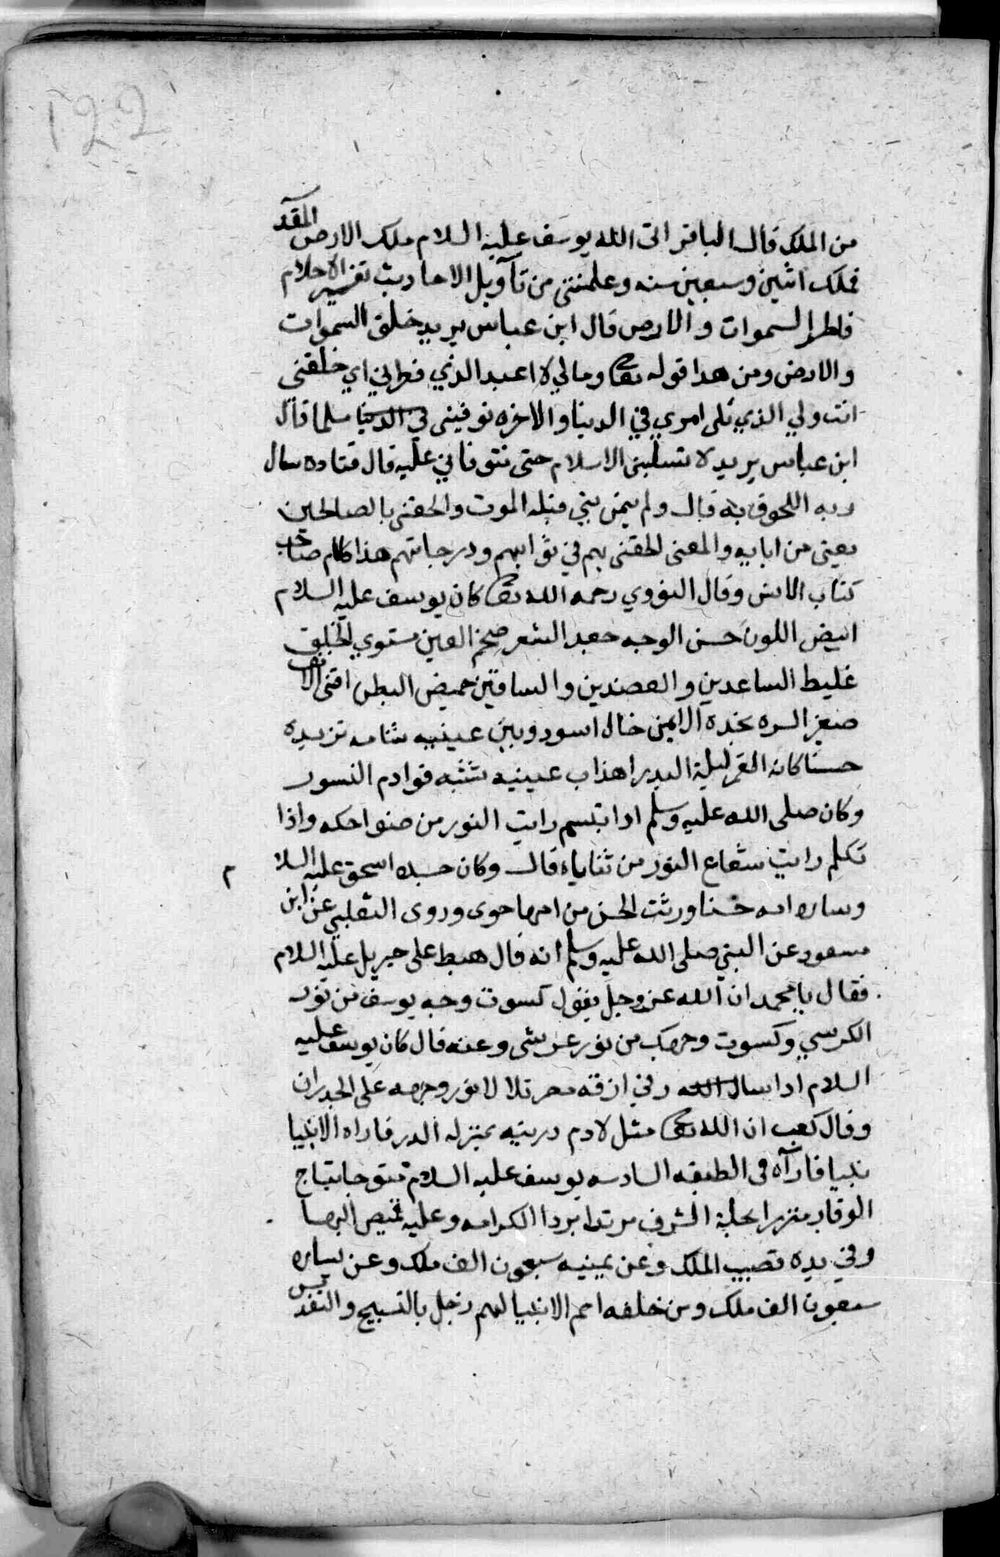 122
من الملك قال الباقر اتى الله يوسف عليه السلام ملك الارض المقد
فملك اثنين وسبعين سنه وعلمتنى من تآويل الاحاديث تفسير الاحلام
فاطر السموات والارض قال ابن عباس يريد خلق السموات
والارض ومن هدا قوله تعا ومالي لا اعبد الذي فطرني اي خلقنى
انت ولي الذي تلى امري في الدنيا والاخره توفينى في الدنيا مسلما قال
ابن عباس يريد لا تسلبنى الاسلام حتى تتوفاني عليه قال قتاده سال
ربه اللحوق به قال ولم يتمن نبي قبله الموت والحقنى بالصالحين
يعنى من ابايه والمعنى الحقنى بهم في ثوابهم ودرجاتهم هذا كلام صاحب
كتاب الانس وقال النووي رحمه الله تعا كان يوسف عليه السلام
ابيض اللون حسن الوجه جعد الشعر ضخم العين مستوي الخلق
غليظ الساعدين والعضدين والساقين خميص البطن اقنى الانف
صغير السره بخده الايمن خال اسود وبين عينيه شامه تزيده
حسنا كانه القمر ليلة البدر اهذاب عينيه تشبه قوادم النسور
وكان صلى الله عليه وسلم ادا تبسم رايت النور من ضواحكه واذا
تكلم رايت شعاع النور من ثناياه قال وكان حسبه اسحق عليه السلا م
وساره امه حسنا ورثت الحسن من امها حوى وروى الثعلبي عن ابن
مسعود عن النبي صلى الله عليه وسلم انه قال هبط على جبريل عليه السلام
فقال يا محمد ان الله عز وجل يقول كسوت وجه يوسف من نور
الكرسي وكسوت وجهك من نور عرشى وعنه قال كان يوسف عليه
السلام ادا سال الله في ازقه مصر تلالا نور وجهه على الجدران
وقال كعب ان الله تعا مثل لادم دريته بمنزله الدر فاراه الانبيا
نبيا فاراه في الطبقه السادسه يوسف عليه السلام متوجا بتاج
الوقار متزرا بحلة الشرف مرتدا بردا الكرامه وعليه قميص البها
وفي يده قضيب الملك وعن يمينه سبعون الف ملك وعن يساره
سبعون الف ملك ومن خلفه امم الانبيا لهم زجل بالتسبيح والتقديس